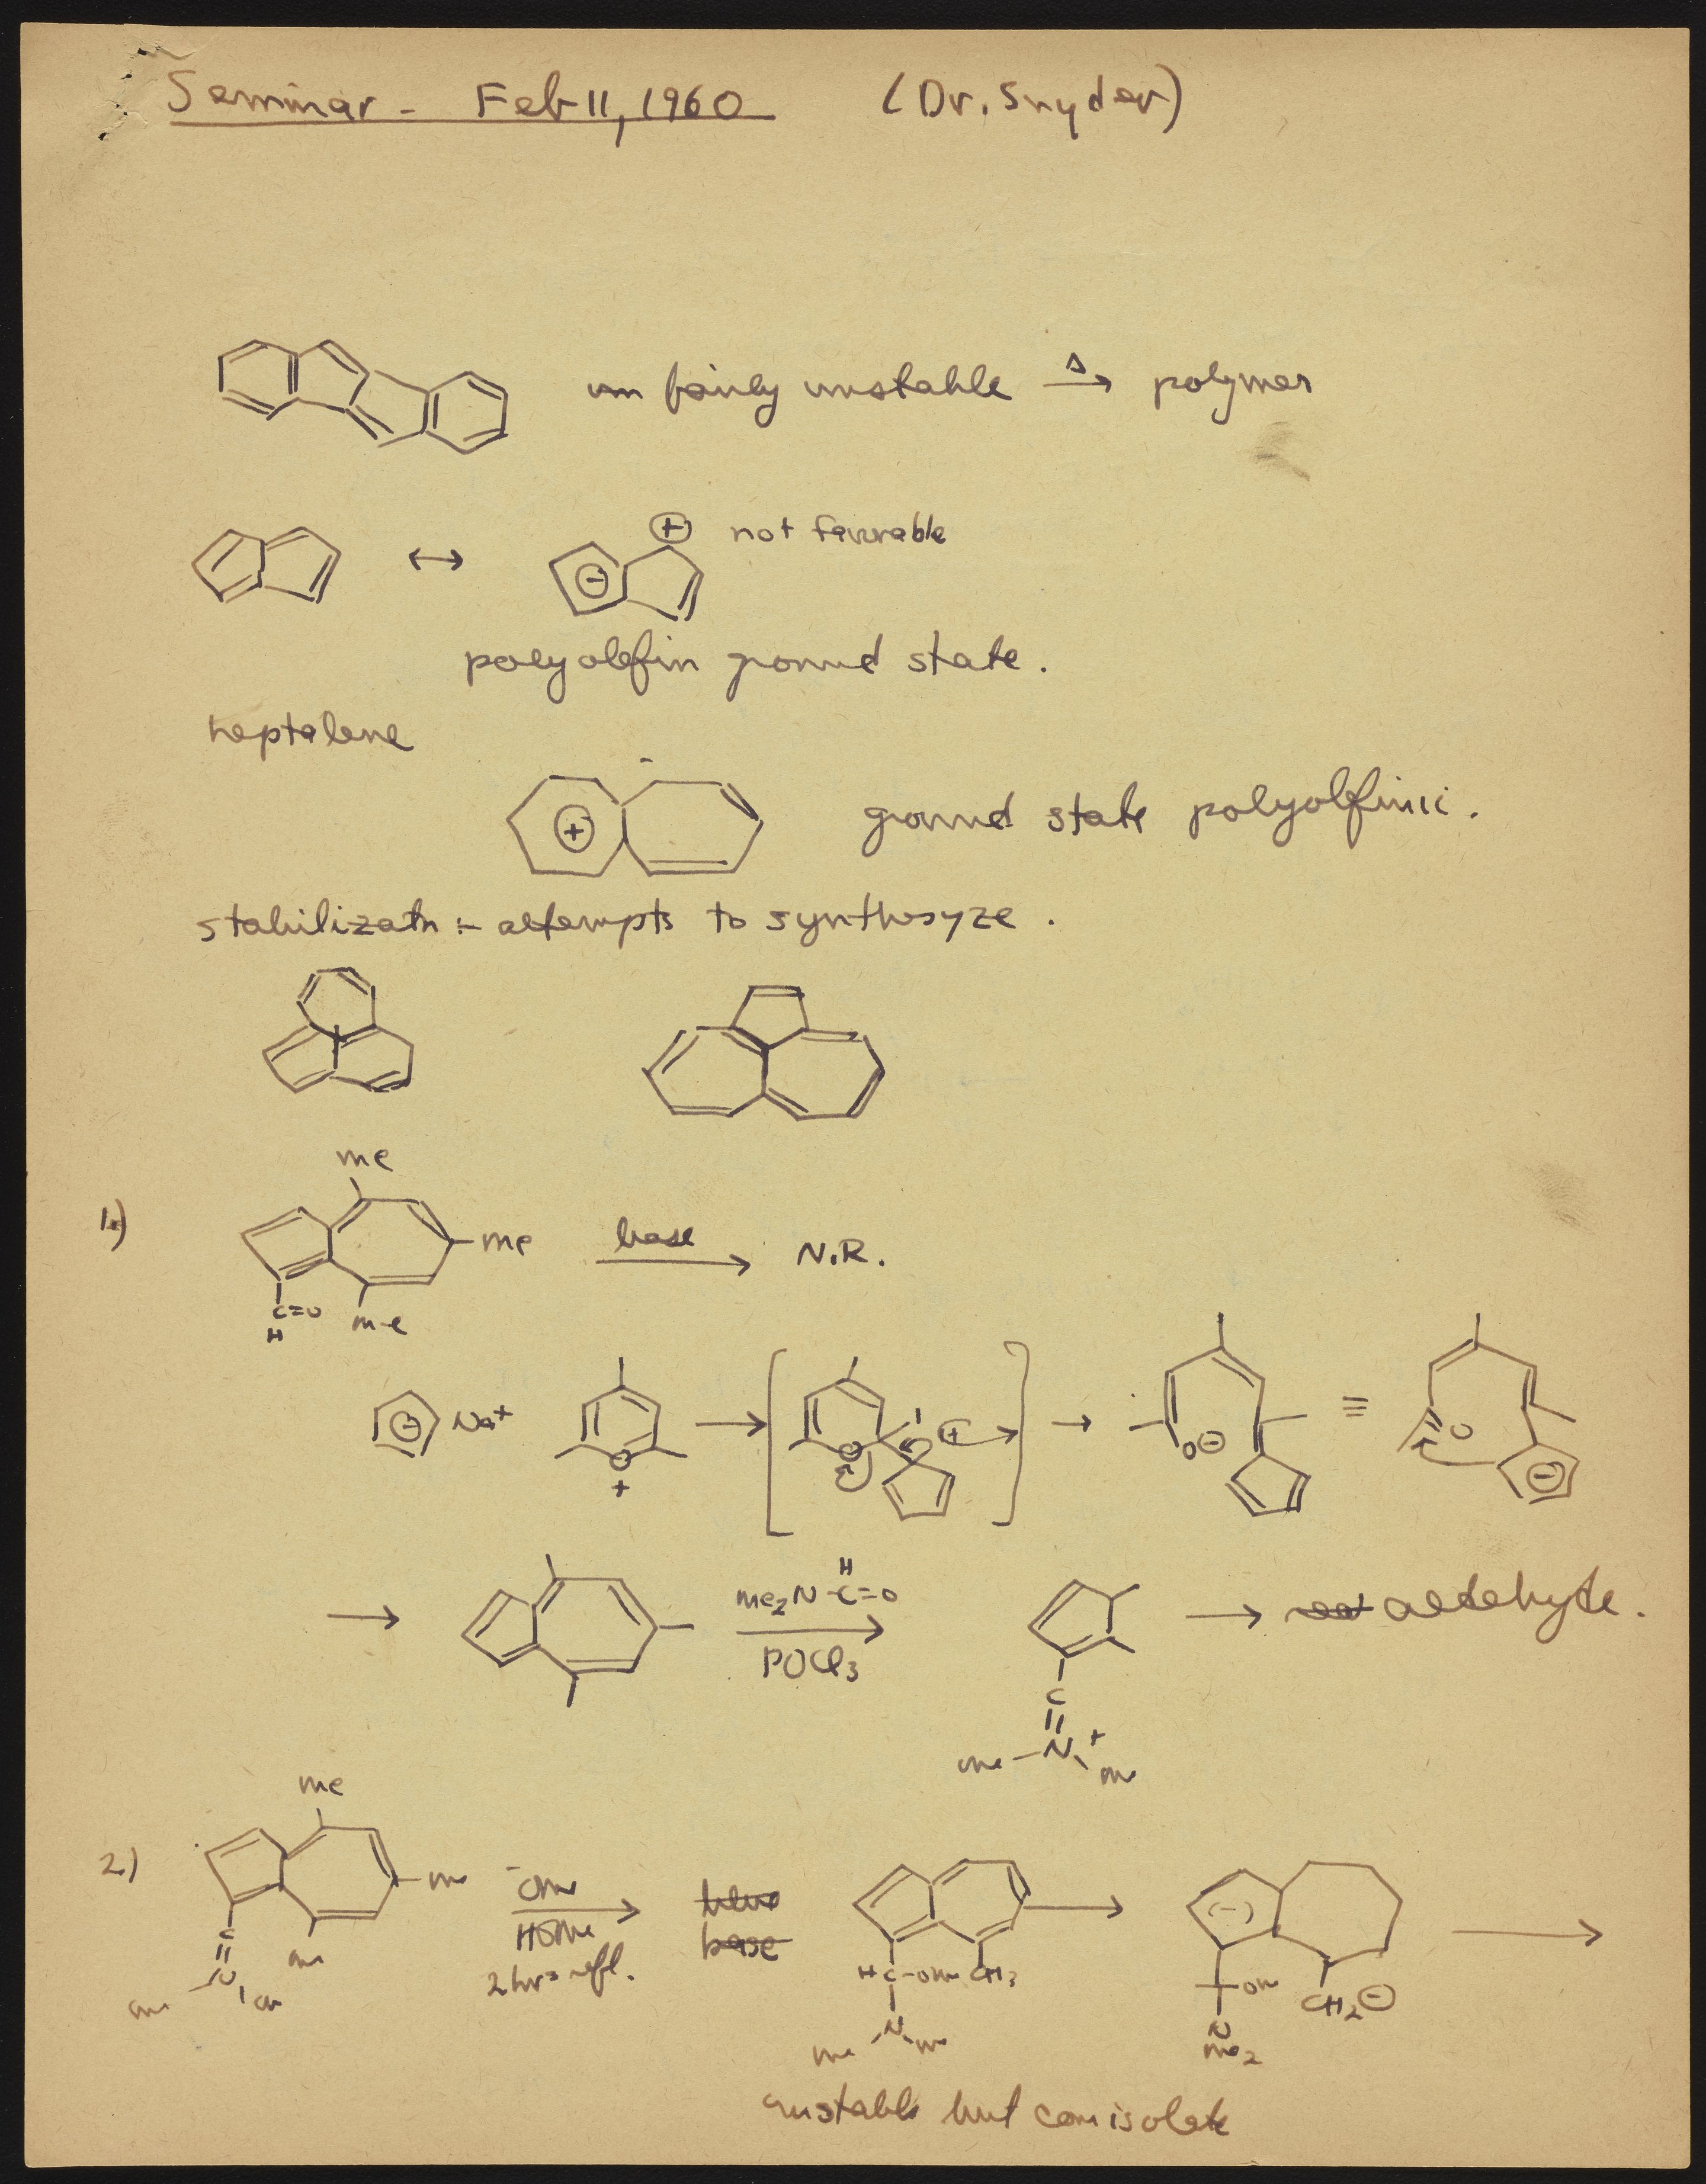 Seminar - Feb 11, 1960 (Dr. Snyder)
fairly unstable Δ→ polymer
↔ ⊖ ⊕ not favorable
polyolefin ground state.
heptalene
+ ground state polyolefinic.
stabilizatn :- attempts to synthesyze.
me
1.) me base → N.R.
C=O me
H
⊖ Na+ O + → [ O ⊕ ] → O⊖ ≡ O ⊖
→ me2N-C=O → aldehyde.
H
POCl3
C
N+
me me
me
2.) me -OMe
HOMe
2 hrs refl.
base
C me
N
me me
HC-OMe CH3 →
N
me me
(-) OMe CH2⊖ →
N
me2
unstable but can isolate